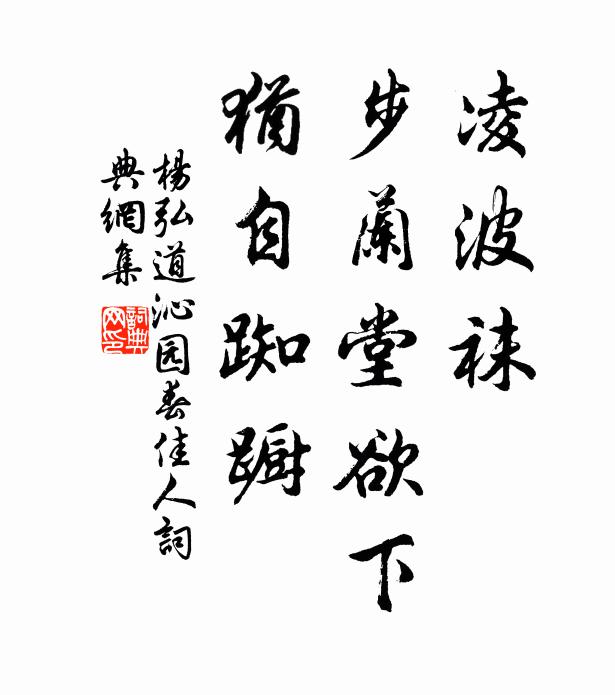 凌波袜
步蘭堂欲下
猶自踟蹰
楊弘道沁园春佳人詞
典網集
詞典
网印